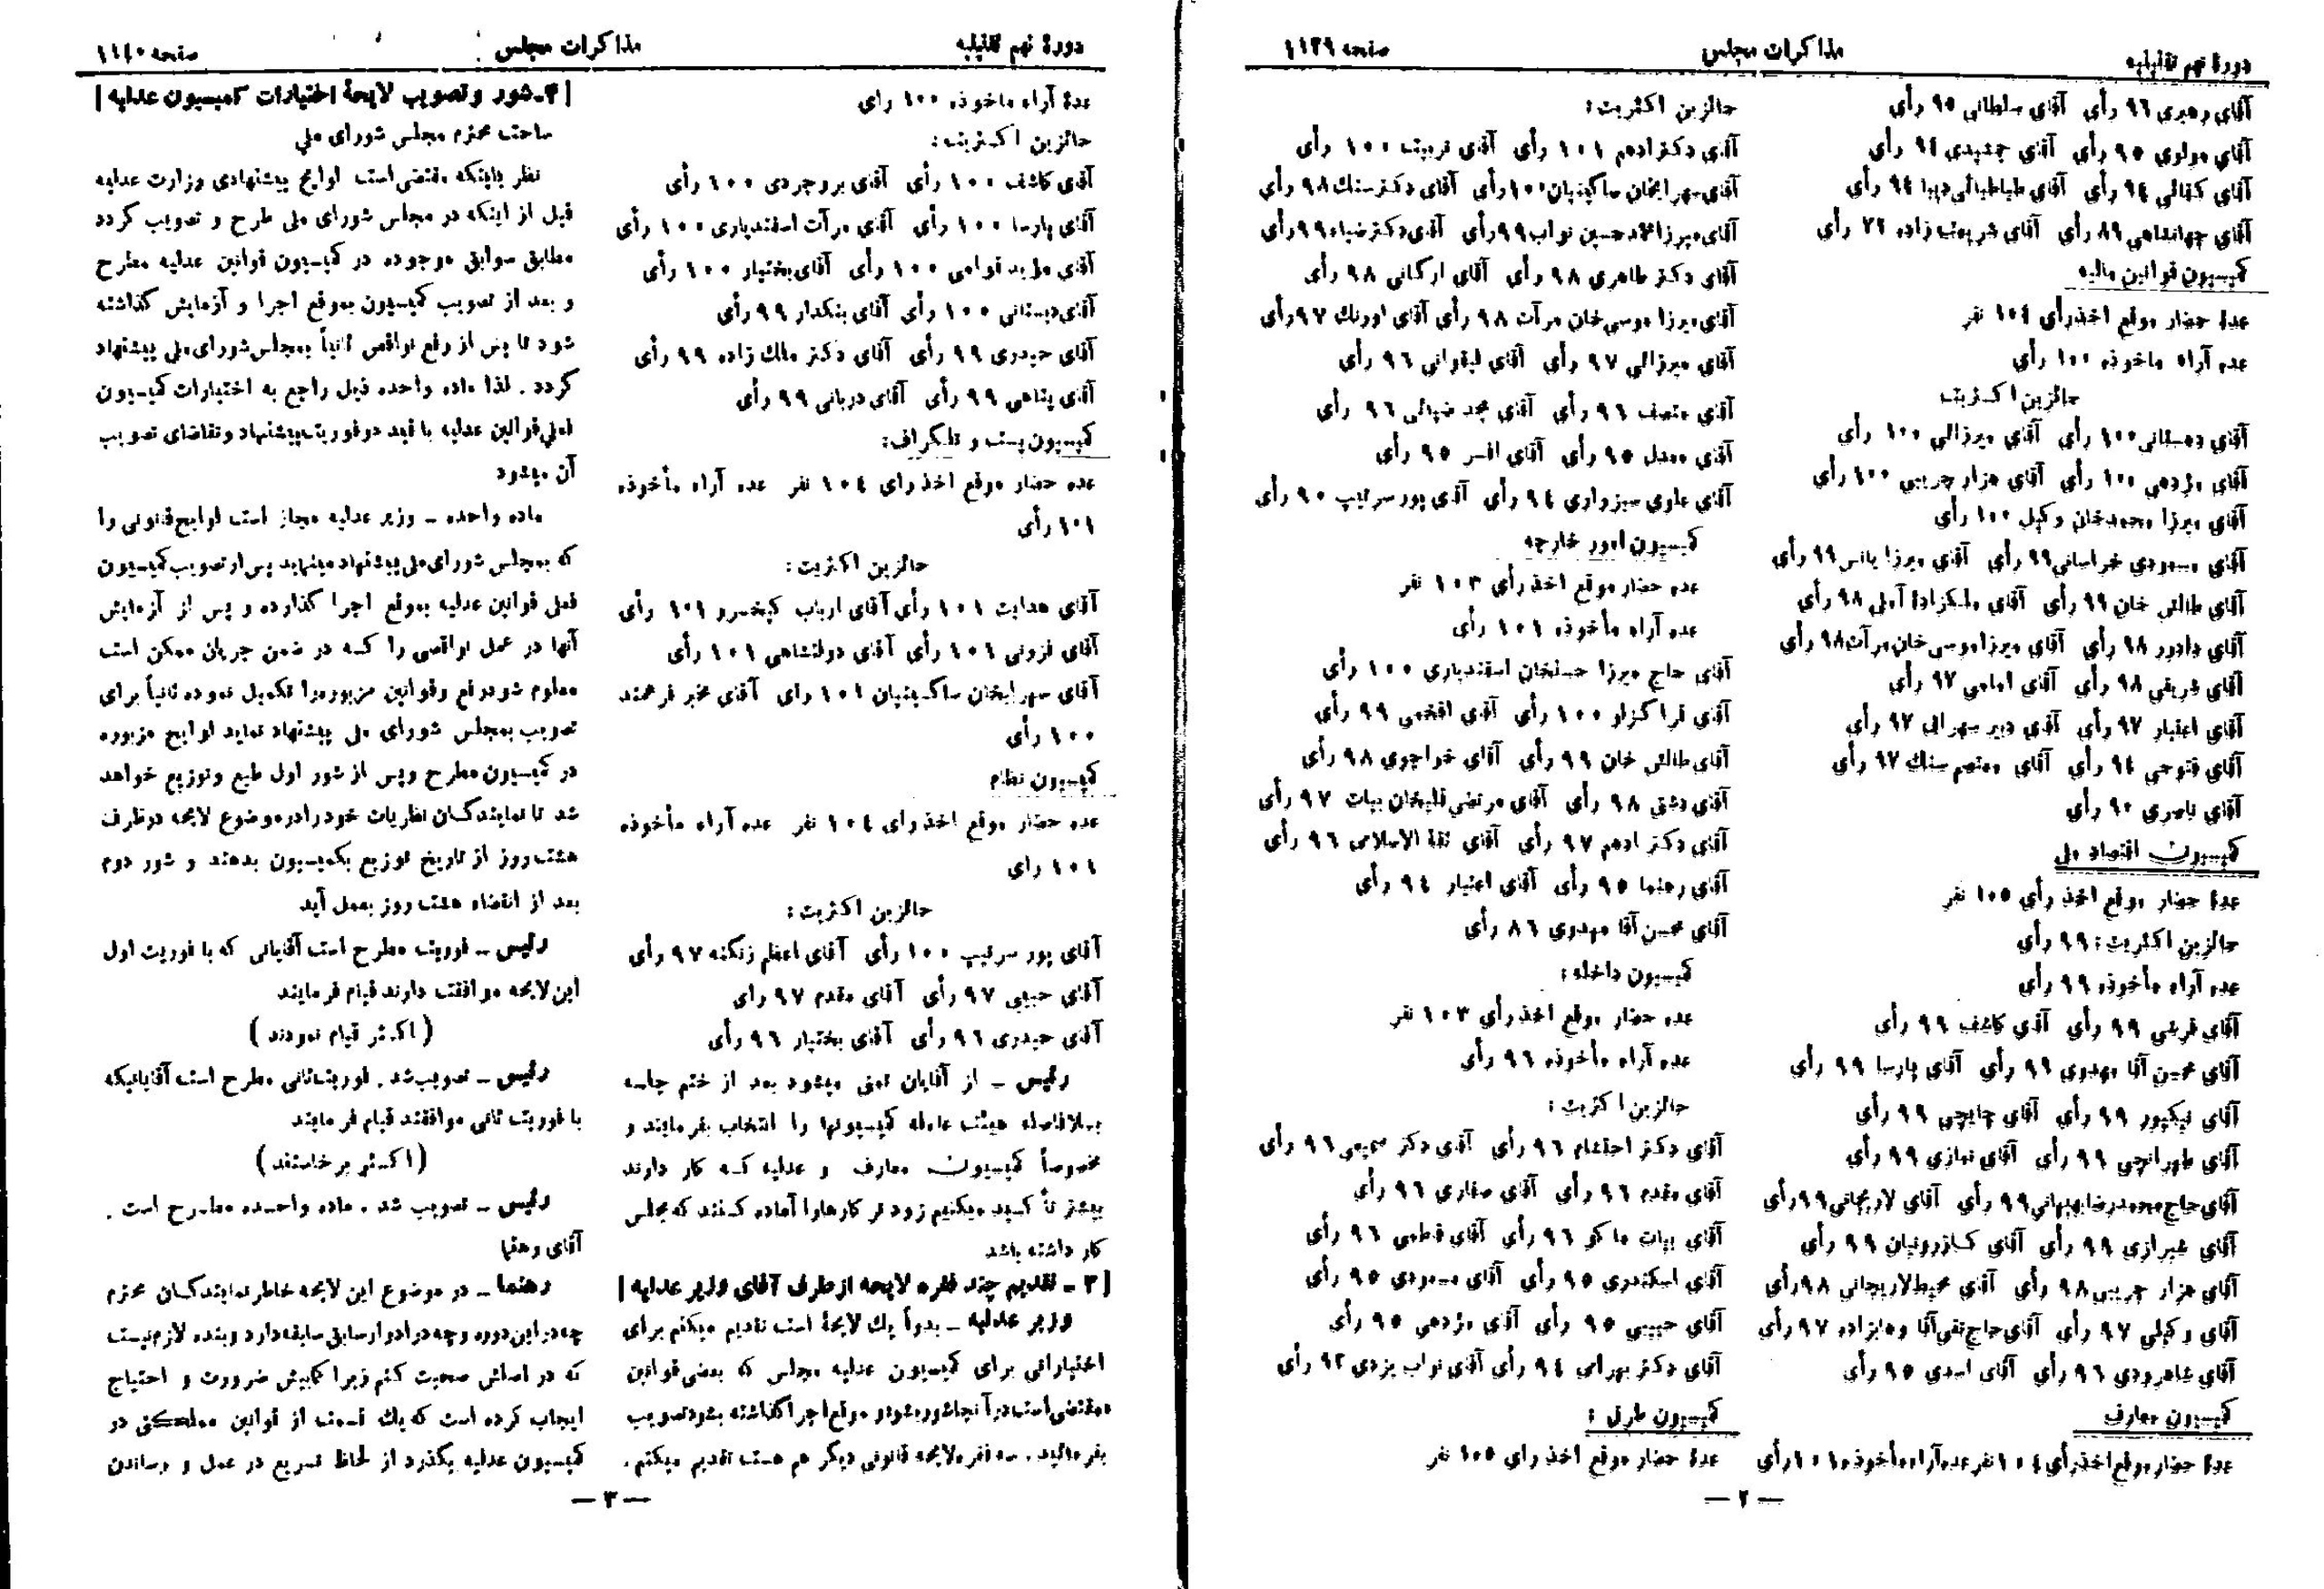 دورهٔ نهم تقنینیه
مذاکرات مجلس
صفحه ۱۱۳۹
آقای رهبری ۹۶ رأی آقای سلطانی ۹۵ رأی
آقای مولوی ۹۵ رأی آقای جمشیدی ۹۴ رأی
آقای کفائی ۹۴ رأی آقای طباطبائی دیبا ۹۴ رأی
آقای جهانشاهی ۸۹ رأی آقای شریعت زاده ۷۴ رأی
کمیسیون قوانین مالیه
عدهٔ حضار موقع اخذ رأی ۱۰۴ نفر
عده آراء ماخوذه ۱۰۰ رأی
حائزین اکثریت
آقای دهستانی ۱۰۰ رأی آقای میرزائی ۱۰۰ رأی
آقای مژدهی ۱۰۰ رأی آقای هزار جریبی ۱۰۰ رأی
آقای میرزا محمدخان وکیل ۱۰۰ رأی
آقای مسعودی خراسانی ۹۹ رأی آقای میرزا یانس ۹۹ رأی
آقای طالش خان ۹۹ رأی آقای ملکزادهٔ آملی ۹۸ رأی
آقای دادور ۹۸ رأی آقای میرزا موسی خان مرآت ۹۸ رأی
آقای شریفی ۹۸ رأی آقای امامی ۹۷ رأی
آقای اعتبار ۹۷ رأی آقای دبیر سهرابی ۹۷ رأی
آقای فتوحی ۹۴ رأی آقای معتصم سنک ۹۷ رأی
آقای ناصری ۹۰ رأی
کمیسیون اقتصاد ملی
عدهٔ حضار موقع اخذ رأی ۱۰۵ نفر
حائزین اکثریت: ۹۹ رأی
عده آراء مأخوذه ۹۹ رأی
آقای قرشی ۹۹ رأی آقای کاشف ۹۹ رأی
آقای محسن آقا مهدوی ۹۹ رأی آقای پارسا ۹۹ رأی
آقای نیکپور ۹۹ رأی آقای چایچی ۹۹ رأی
آقای طهرانچی ۹۹ رأی آقای نمازی ۹۹ رأی
آقای حاج محمدرضا بهبهانی ۹۹ رأی آقای لاریجانی ۹۹ رأی
آقای شیرازی ۹۹ رأی آقای کازرونیان ۹۹ رأی
آقای هزار جریبی ۹۸ رأی آقای محیط لاریجانی ۹۸ رأی
آقای وکیلی ۹۷ رأی آقای حاج تقی آقا وهابزاده ۹۷ رأی
آقای شاهرودی ۹۶ رأی آقای اسدی ۹۵ رأی
کمیسیون معارف
عدهٔ حضار موقع اخذ رأی ۱۰۴ نفر عده آراء مأخوذه ۱۰۱ رأی
حائزین اکثریت:
آقای دکتر ادهم ۱۰۱ رأی آقای تربیت ۱۰۰ رأی
آقای سهرابخان ساکینیان ۱۰۰ رأی آقای دکتر سنک ۹۸ رأی
آقای میرزا محمد حسین نواب ۹۹ رأی آقای دکتر ضیاء ۹۹ رأی
آقای دکتر طاهری ۹۸ رأی آقای ارکانی ۹۸ رأی
آقای میرزا موسی خان مرآت ۹۸ رأی آقای اورنک ۹۷ رأی
آقای میرزائی ۹۷ رأی آقای لیقوانی ۹۶ رأی
آقای منصف ۹۶ رأی آقای مجد ضیائی ۹۶ رأی
آقای معدل ۹۵ رأی آقای افسر ۹۵ رأی
آقای علوی سبزواری ۹۴ رأی آقای پور سرتیپ ۹۰ رأی
کمیسیون امور خارجه
عده حضار موقع اخذ رأی ۱۰۳ نفر
عده آراء مأخوذه ۱۰۱ رأی
آقای حاج میرزا حسنخان اسفندیاری ۱۰۰ رأی
آقای قراگزلو ۱۰۰ رأی آقای افخمی ۹۹ رأی
آقای طالش خان ۹۹ رأی آقای خواجوی ۹۸ رأی
آقای دشتی ۹۸ رأی آقای مرتضی قلیخان بیات ۹۷ رأی
آقای دکتر ادهم ۹۷ رأی آقای ثقة الاسلامی ۹۶ رأی
آقای رهنما ۹۵ رأی آقای اعتبار ۹۴ رأی
آقای محسن آقا مهدوی ۸۶ رأی
کمیسیون داخله:
عده حضار موقع اخذ رأی ۱۰۳ نفر
عده آراء مأخوذه ۹۶ رأی
حائزین اکثریت:
آقای دکتر احتشام ۹۶ رأی آقای دکتر سمیعی ۹۶ رأی
آقای مقدم ۹۶ رأی آقای صفاری ۹۶ رأی
آقای بیات ماکو ۹۶ رأی آقای فاطمی ۹۶ رأی
آقای اسکندری ۹۵ رأی آقای مسعودی ۹۵ رأی
آقای حبیبی ۹۵ رأی آقای مژدهی ۹۵ رأی
آقای دکتر بهرامی ۹۴ رأی آقای نواب یزدی ۹۲ رأی
کمیسیون طرق:
عدهٔ حضار موقع اخذ رای ۱۰۵ نفر
— ۲ —
دورهٔ نهم تقنینیه
مذاکرات مجلس
صفحه ۱۱۴۰
عدهٔ آراء ماخوذه ۱۰۰ رای
حائزین اکثریت:
آقای کاشف ۱۰۰ رأی آقای بروجردی ۱۰۰ رأی
آقای پارسا ۱۰۰ رأی آقای مرآت اسفندیاری ۱۰۰ رأی
آقای مؤید قوامی ۱۰۰ رأی آقای بختیار ۱۰۰ رأی
آقای دبستانی ۱۰۰ رأی آقای بنکدار ۹۹ رأی
آقای حیدری ۹۹ رأی آقای دکتر ملک زاده ۹۹ رأی
آقای پناهی ۹۹ رأی آقای دربانی ۹۹ رأی
کمیسیون پست و تلگراف:
عده حضار موقع اخذ رای ۱۰۴ نفر عده آراء مأخوذه
۱۰۱ رأی
حائزین اکثریت:
آقای هدایت ۱۰۱ رأی آقای ارباب کیخسرو ۱۰۱ رأی
آقای قزونی ۱۰۱ رأی آقای دولتشاهی ۱۰۱ رأی
آقای سهرابخان ساکینیان ۱۰۱ رای آقای مخبر فرهمند
۱۰۰ رأی
کمیسیون نظام
عده حضار موقع اخذ رای ۱۰۴ نفر عده آراء مأخوذه
۱۰۱ رای
حائزین اکثریت:
آقای پور سرتیپ ۱۰۰ رأی آقای اعظم زنگنه ۹۷ رأی
آقای حبیبی ۹۷ رأی آقای مقدم ۹۷ رای
آقای حیدری ۹۶ رأی آقای بختیار ۹۶ رأی
رئیس ـ از آقایان تمنی میشود بعد از ختم جلسه
بلافاصله هیئت عامله کمیسیونها را انتخاب بفرمایند و
مخصوصاً کمیسیون معارف و عدلیه که کار دارند
بیشتر تأکید میکنیم زودتر کارها را آماده کنند که مجلس
کار داشته باشد
[۳ ـ تقدیم چند فقره لایحه از طرف آقای وزیر عدلیه]
وزیر عدلیه ـ بدواً یک لایحهٔ است تقدیم میکنم برای
اختیاراتی برای کمیسیون عدلیه مجلس که بعضی قوانین
مقتضی است در آنجا شور بشود و موقع اجرا گذاشته بشود تصویب
بفرمائید. سه فقره لایحه قانونی دیگر هم هست تقدیم میکنم.
[۴ـ شور و تصویب لایحهٔ اختیارات کمیسیون عدلیه]
ساحت محترم مجلس شورای ملی
نظر باینکه مقتضی است لوایح پیشنهادی وزارت عدلیه
قبل از اینکه در مجلس شورای ملی طرح و تصویب گردد
مطابق سوابق موجوده در کمیسیون قوانین عدلیه مطرح
و بعد از تصویب کمیسیون بموقع اجرا و آزمایش گذاشته
شود تا پس از رفع نواقص ثانیاً بمجلس شورای ملی پیشنهاد
گردد. لذا ماده واحده ذیل راجع به اختیارات کمیسیون
فعلی قوانین عدلیه با قید دو فوریت پیشنهاد و تقاضای تصویب
آن میشود
ماده واحده ـ وزیر عدلیه مجاز است لوایح قانونی را
که بمجلس شورای ملی پیشنهاد مینماید پس از تصویب کمیسیون
فعلی قوانین عدلیه بموقع اجرا گذارده و پس از آزمایش
آنها در عمل نواقصی را که در ضمن جریان ممکن است
معلوم شود رفع و قوانین مزبوره را تکمیل نموده ثانیاً برای
تصویب بمجلس شورای ملی پیشنهاد نماید لوایح مزبوره
در کمیسیون مطرح و پس از شور اول طبع و توزیع خواهد
شد تا نمایندگان نظریات خود را در موضوع لایحه در ظرف
هشت روز از تاریخ توزیع بکمیسیون بدهند و شور دوم
بعد از انقضاء هشت روز بعمل آید
رئیس ـ فوریت مطرح است آقایانی که با فوریت اول
این لایحه موافقت دارند قیام فرمایند
(اکثر قیام نمودند)
رئیس ـ تصویب شد. فوریت ثانی مطرح است آقایانیکه
با فوریت ثانی موافقند قیام فرمایند
(اکثر برخاستند)
رئیس ـ تصویب شد. ماده واحده مطرح است.
آقای رهنما
رهنما ـ در موضوع این لایحه خاطر نمایندگان محترم
چه در این دوره و چه در ادوار سابق سابقه دارد و بنده لازم نیست
که در اساسش صحبت کنم زیرا کمابیش ضرورت و احتیاج
ایجاب کرده است که یک قسمت از قوانین مملکتی در
کمیسیون عدلیه بگذرد از لحاظ تسریع در عمل و رساندن
— ۳ —